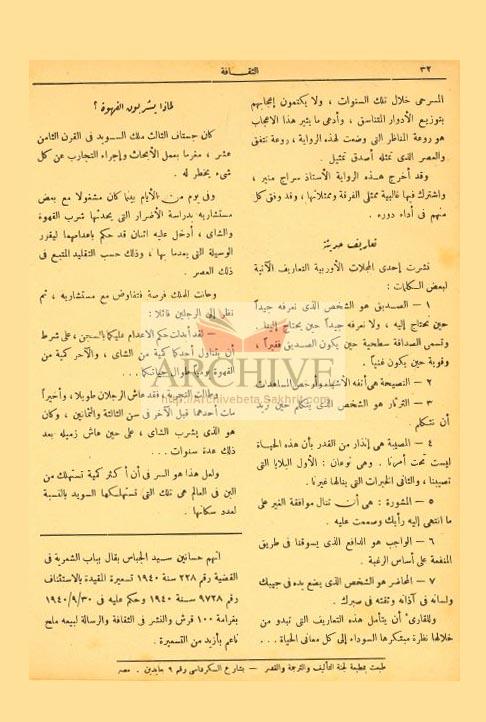 ٣٢
الثقافة
المسرحى خلال تلك السنوات ، ولا يكتمون إعجابهم
بتوزيع الأدوار المتناسق ، وأدعى ما يثير هذا الاعجاب
هو روعة المناظر التى وضعت لهذه الرواية ، روعة تتفق
والعصر الذى تمثله أصدق تمثيل .
وقد أخرج هذه الرواية الأستاذ سراج منير ،
واشترك فيها غالبية ممثلى الفرقة وممثلاتها ، وقد وفق كل
منهم فى أداء دوره .
تعاريف حديثة
نشرت إحدى المجلات الأوربية التعاريف الآتية
لبعض الكلمات :
١ — الصديق هو الشخص الذى نعرفه جيداً
حين يحتاج إليه ، ولا نعرفه جيداً حين يحتاج إلينا .
وتسمى الصداقة سطحية حين يكون الصديق فقيراً ،
وقوية حين يكون غنياً .
٢ — النصيحة هى أتفه الأشياء وأرخص المساعدات
٣ — الثرثار هو الشخص الذى يتكلم حين نريد
أن نتكلم .
٤ — المصيبة هى إنذار من القدر بأن هذه الحياة
ليست تحت أمرنا . وهى نوعان : الأول البلايا التى
تصيبنا ، والثانى الخيرات التى ينالها غيرنا .
٥ — المشورة : هى أن تنال موافقة الغير على
ما انتهى إليه رأيك وصممت عليه .
٦ — الواجب هو الدافع الذى يسوقنا فى طريق
المنفعة على أساس الرغبة .
٧ — المحاضر هو الشخص الذى يضع يده فى جيبك
ولسانه فى آذانه وثقته فى صبرك .
وللقارئ أن يتأمل هذه التعاريف التى تبدو من
خلالها نظرة مبتكرها السوداء إلى كل معانى الحياة . . .
لماذا يشربون القهوة ؟
كان جستاف الثالث ملك السويد فى القرن الثامن
عشر ، مغرما بعمل الأبحاث وإجراء التجارب عن كل
شىء يخطر له .
وفى يوم من الأيام بينما كان مشغولا مع بعض
مستشاريه بدراسة الأضرار التى يحدثها شرب القهوة
والشاى ، أدخل عليه اثنان قد حكم باعدامهما ليقرر
الوسيلة التى يعدما بها ، وذلك حسب التقليد المتبع فى
ذلك العصر .
وحانت للملك فرصة فتفاوض مع مستشاريه ، ثم
نظر إلى الرجلين قائلا :
— لقد أبدلت حكم الاعدام عليكما بالسجن ، على شرط
أن يتناول أحدكما كمية من الشاى ، والآخر كمية من
القهوة يومياً طوال حياتكما . . .
وطالت التجربة ، فقد عاش الرجلان طويلا ، وأخيراً
مات أحدهما قبل الآخر فى سن الثالثة والثمانين ، وكان
هو الذى يشرب الشاى ، على حين عاش زميله بعد
ذلك عدة سنوات . . .
ولعل هذا هو السر فى أن أكثر كمية تستهلك من
البن فى العالم هى تلك التى تستهلكها السويد بالنسبة
لعدد سكانها .
اتهم حسانين سيد الجباس بقال بباب الشعرية فى
القضية رقم ٢٢٨ سنة ١٩٤٠ تسعيرة المقيدة بالاستئناف
رقم ٩٧٢٨ سنة ١٩٤٠ وحكم عليه فى ١٩٤٠/٩/٣٠
بغرامة ١٠٠ قرش والنشر فى الثقافة والرسالة لبيعه ملح
ناعم بأزيد من التسعيرة .
طبعت بمطبعة لجنة التأليف والترجمة والنشر — بشارع السكرداسى رقم ٩ عابدين . مصر
ARCHIVE
http://Archivebeta.Sakhrit.com